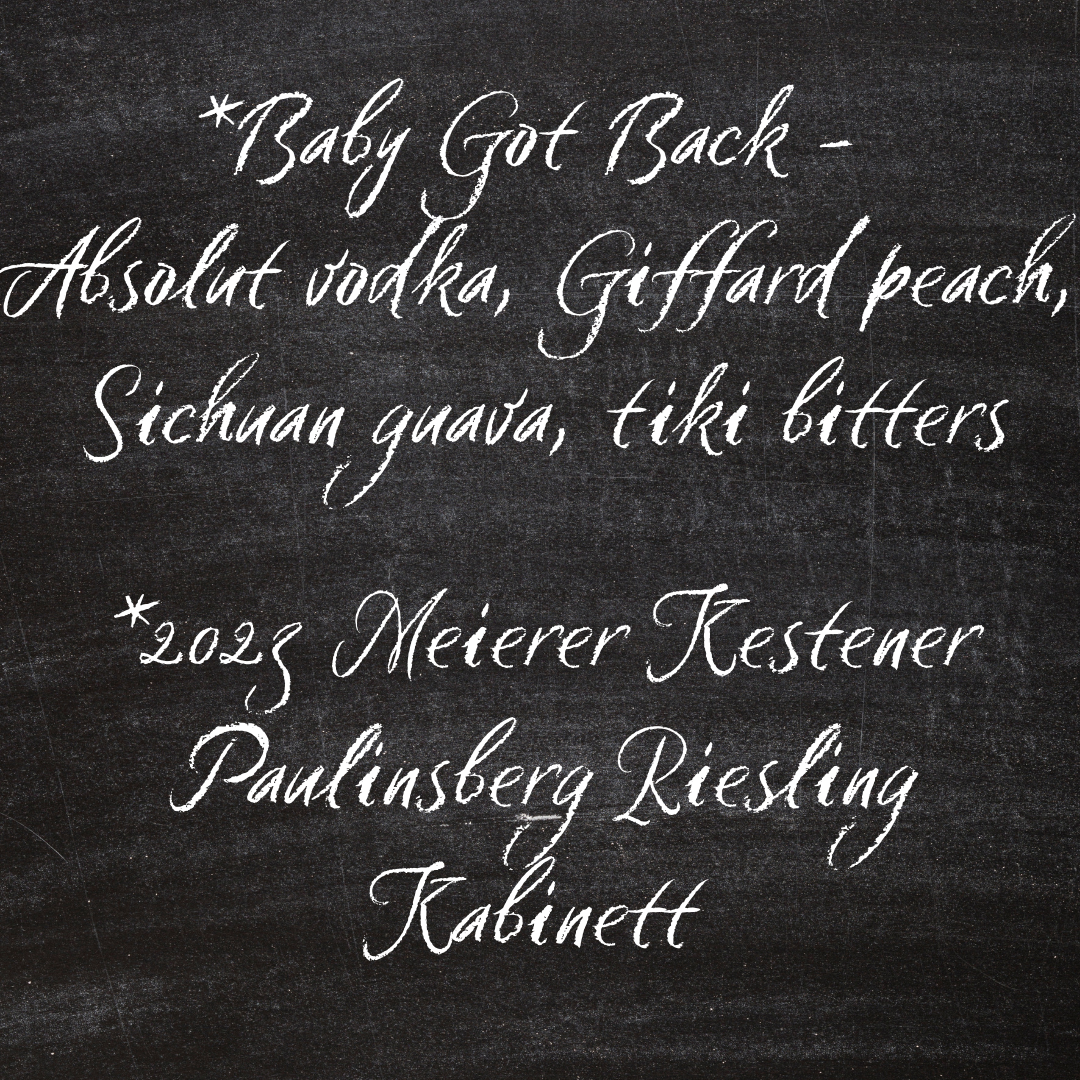 *Baby Got Back -
Absolut vodka, Giffard peach,
Sichuan guava, tiki bitters
*2023 Meierer Kestener
Paulinsberg Riesling
Kabinett